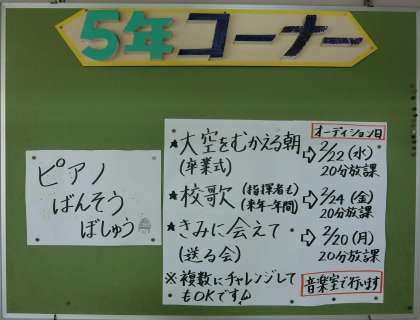 5年コーナー
ピアノ
ばんそう
ぼしゅう
オーディション日
★大空をむかえる朝
(卒業式)
⇨2/22(水)
20分放課
★校歌(指揮者も)
(来年一年間)
⇨2/24(金)
20分放課
★きみに会えて
(送る会)
⇨2/20(月)
20分放課
※複数にチャレンジして
もOKです
音楽室で行います